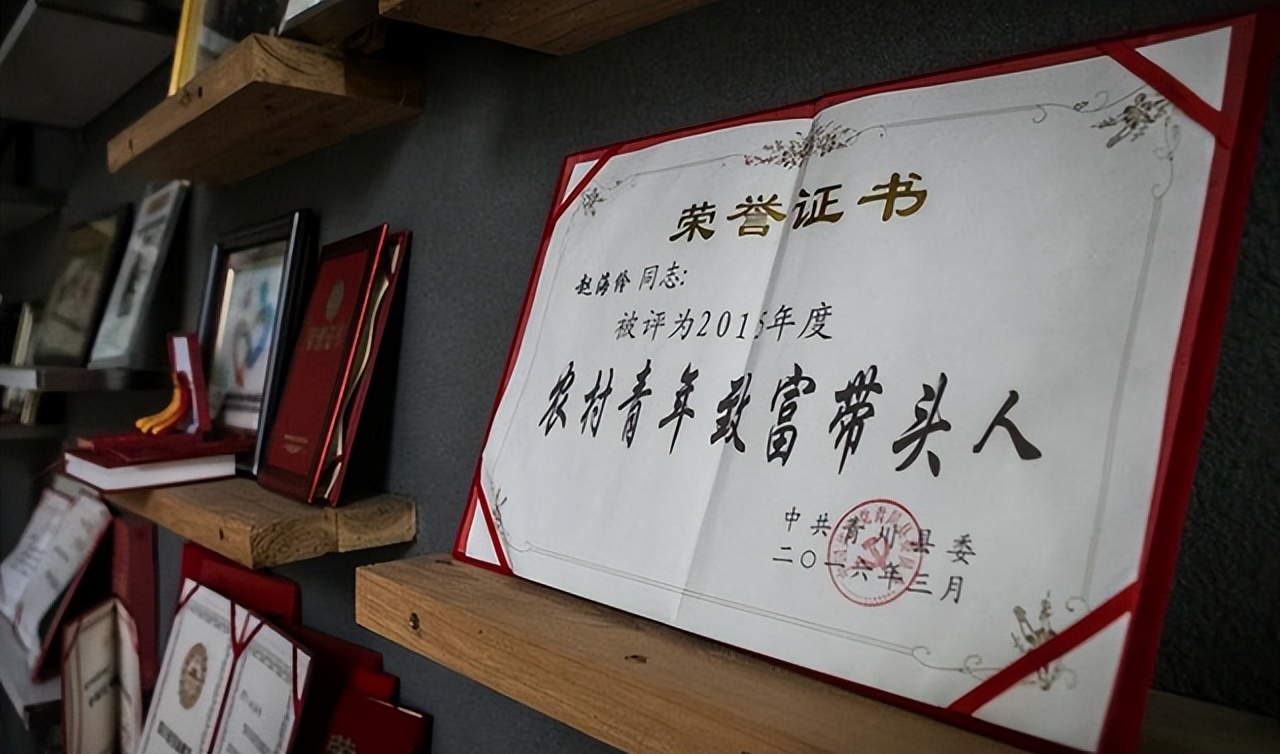 荣誉证书
赵海伶 同志:
被评为2015年度
农村青年致富带头人
中共青川县委
二〇一六年三月